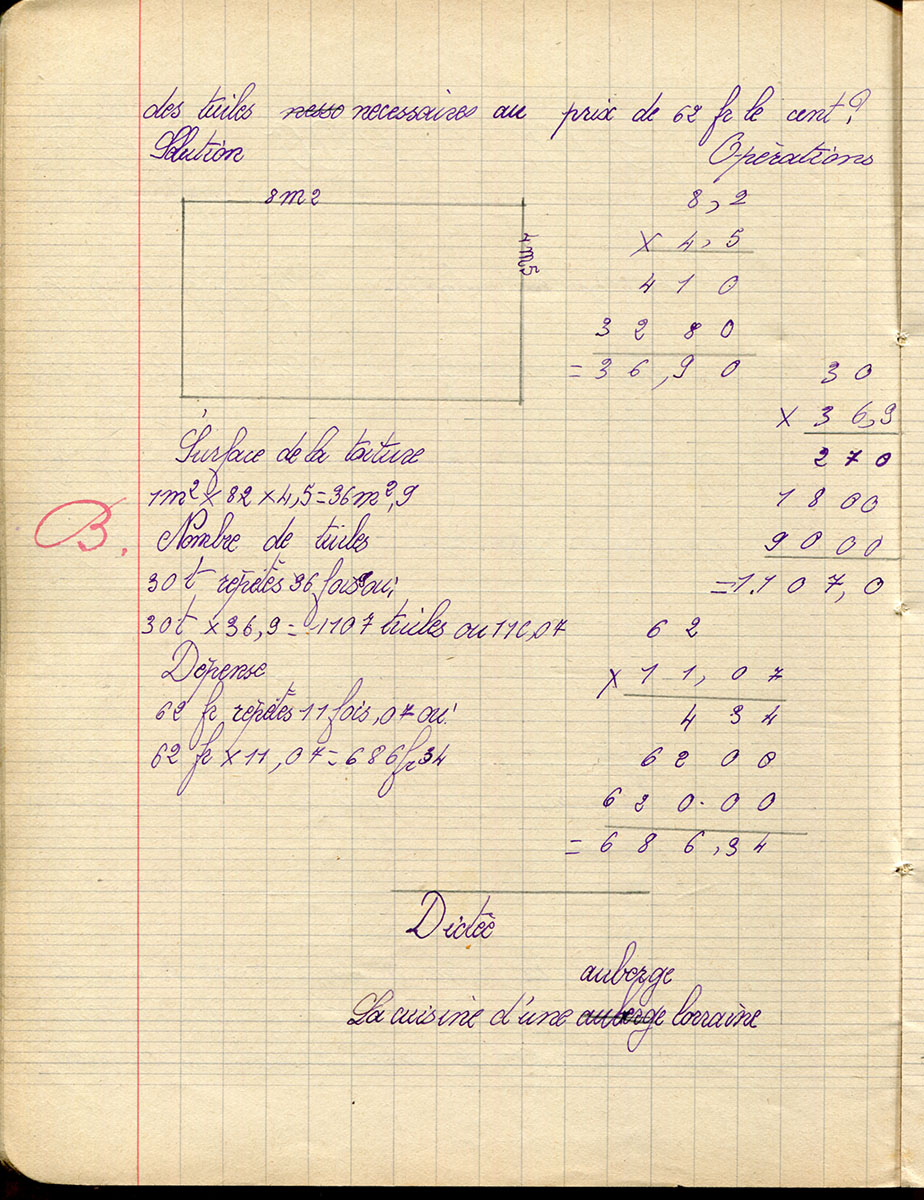 des tuiles nesso necessaires au prix de 62 fr le cent?
Solution
Opérations
8m2
4m5
8,2
× 4,5
410
3280
= 36,90
30
× 36,9
270
1800
9000
= 1.107,0
Surface de la toiture
1m² × 82 × 4,5 = 36m²,9
B.
Nombre de tuiles
30t répétés 36 fois 9 ou;
30t × 36,9 = 1107 tuiles ou 11c,07
Dépense
62 fr répétés 11 fois,07 ou:
62 fr × 11,07 = 686fr34
62
× 11,07
434
6200
620.00
= 686,34
Dictée
auberge
La cuisine d'une auberge lorraine